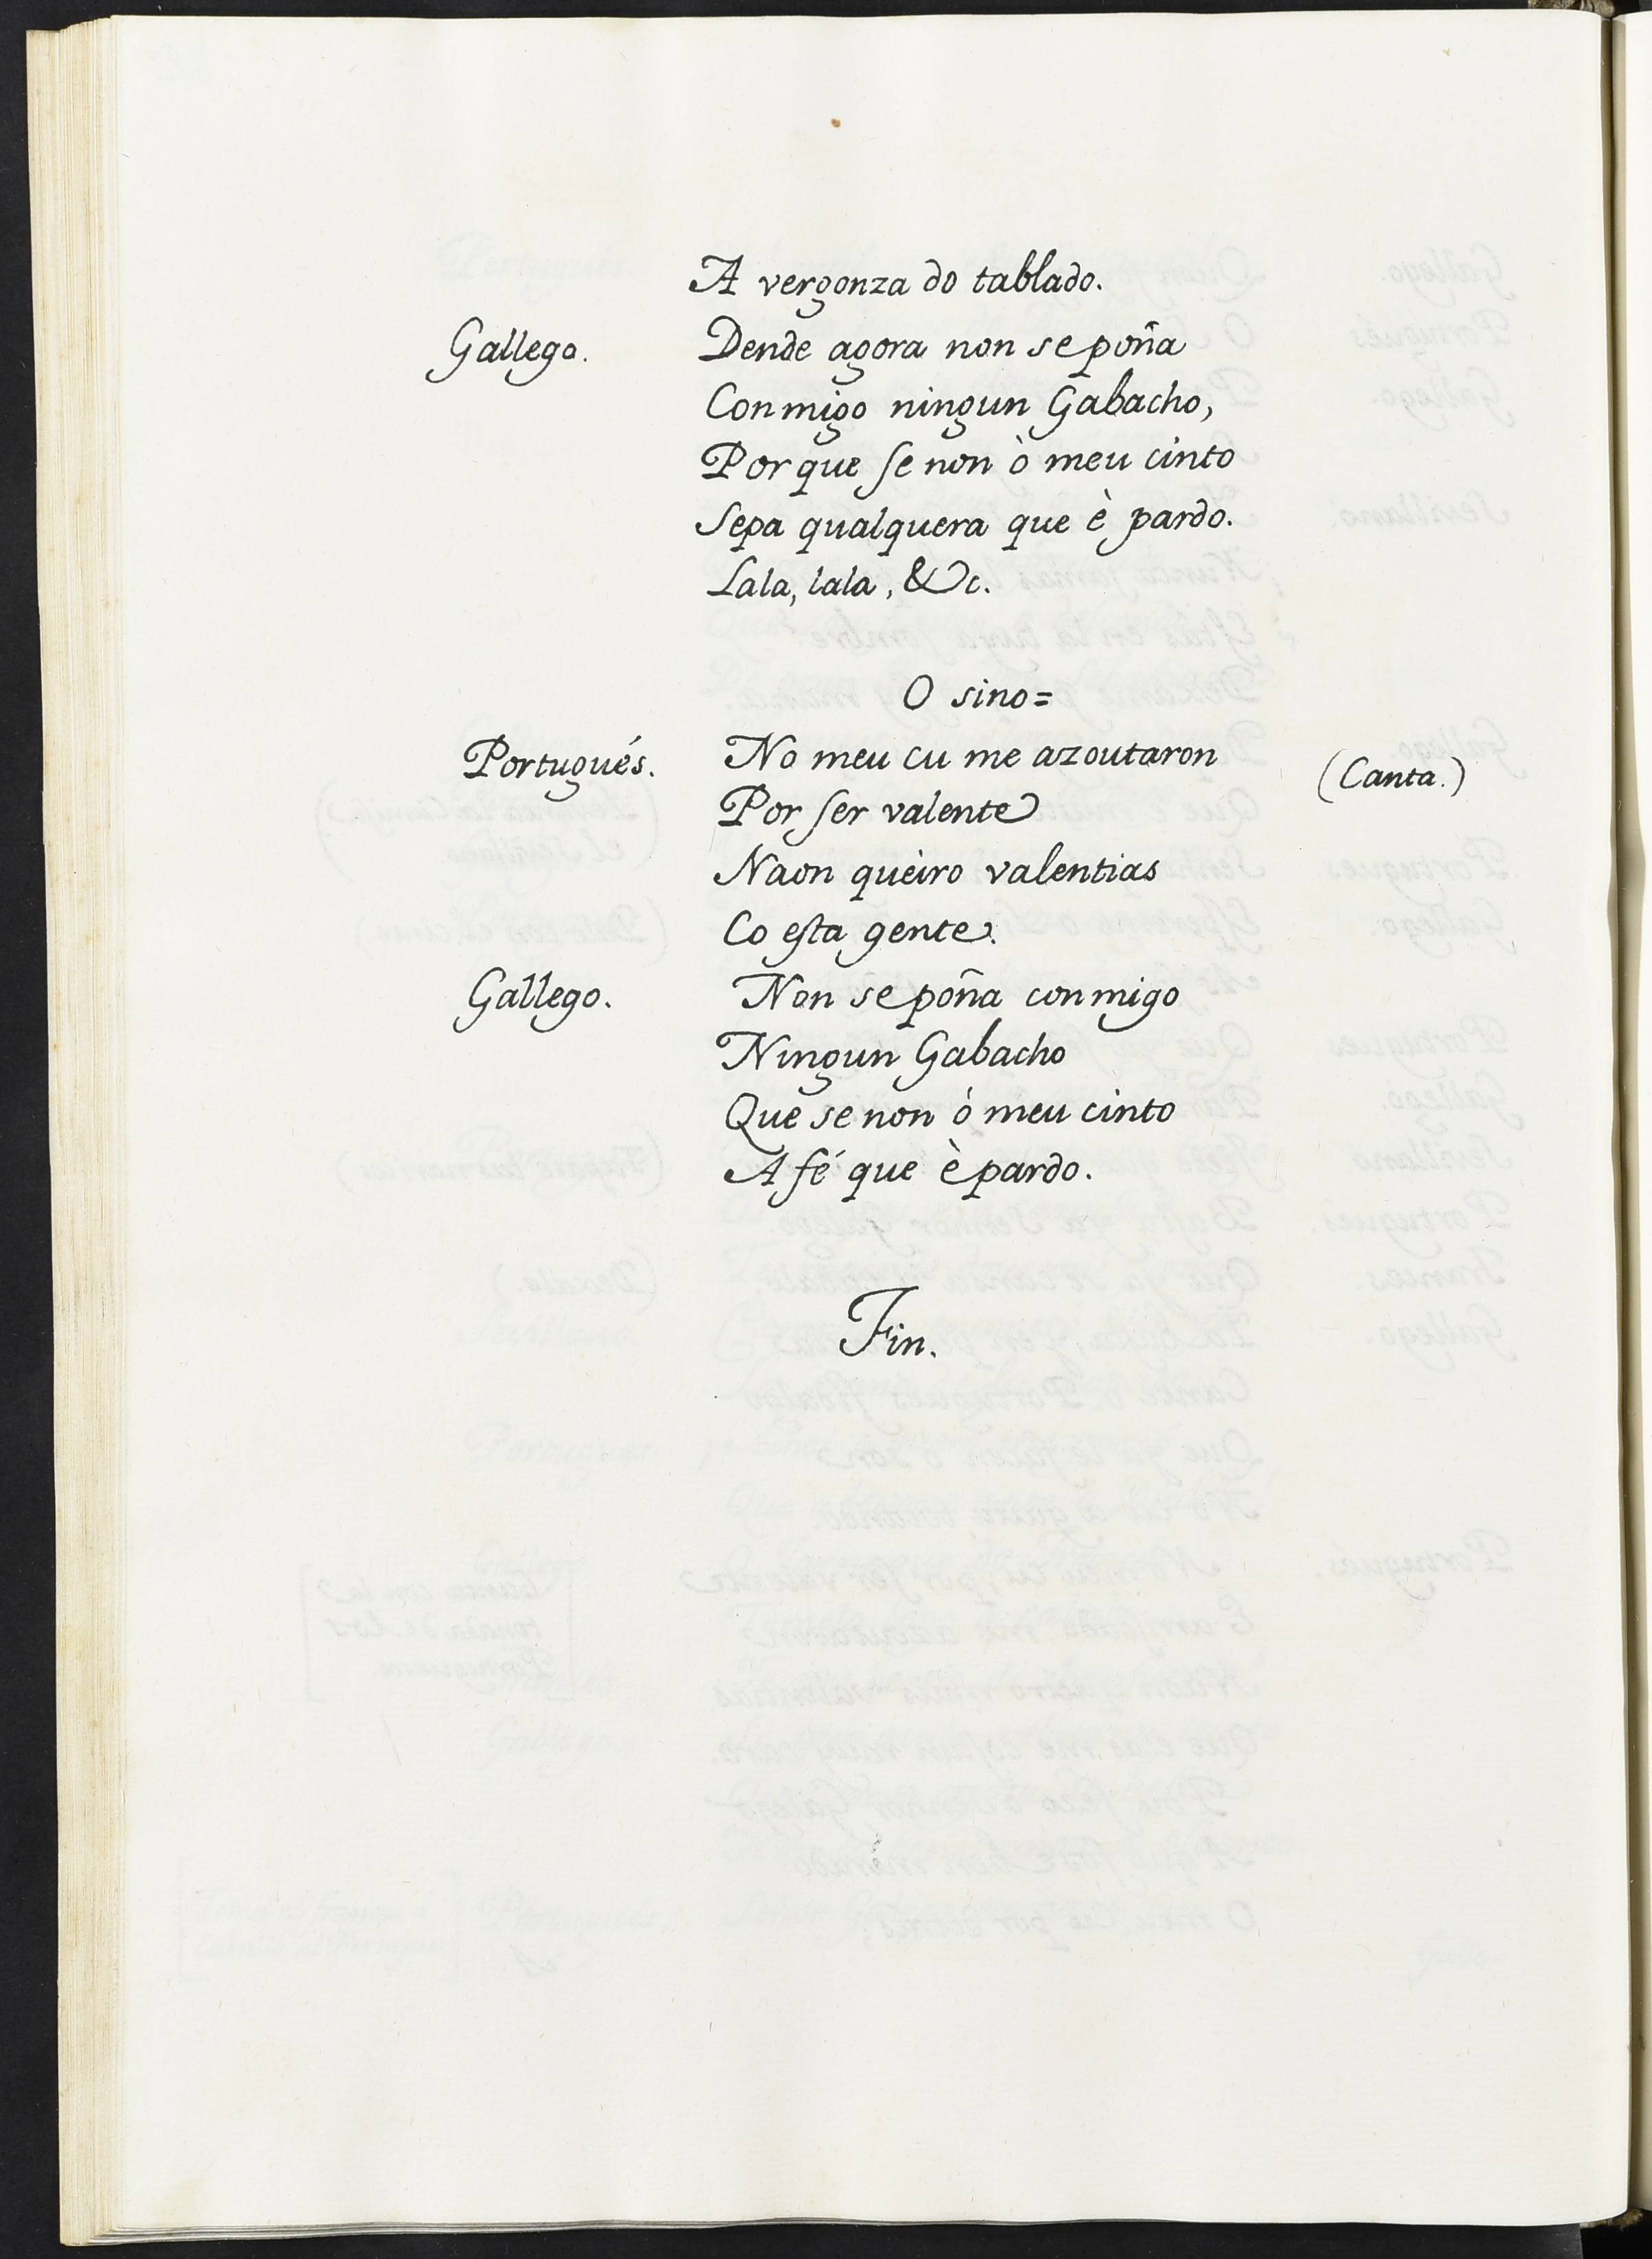 A vergonza do tablado.
Gallego. Dende agora non se poña
Conmigo ningun Gabacho,
Por que se non ò meu cinto
Sepa qualquera que è pardo.
Lala, lala, &c.
O sino=
Portugués. No meu cu me azoutaron (Canta.)
Por ser valente
Naon quèiro valentias
Co esta gente.
Gallego. Non se poña conmigo
Ningun Gabacho
Que se non ò meu cinto
A fé que è pardo.
Fin.